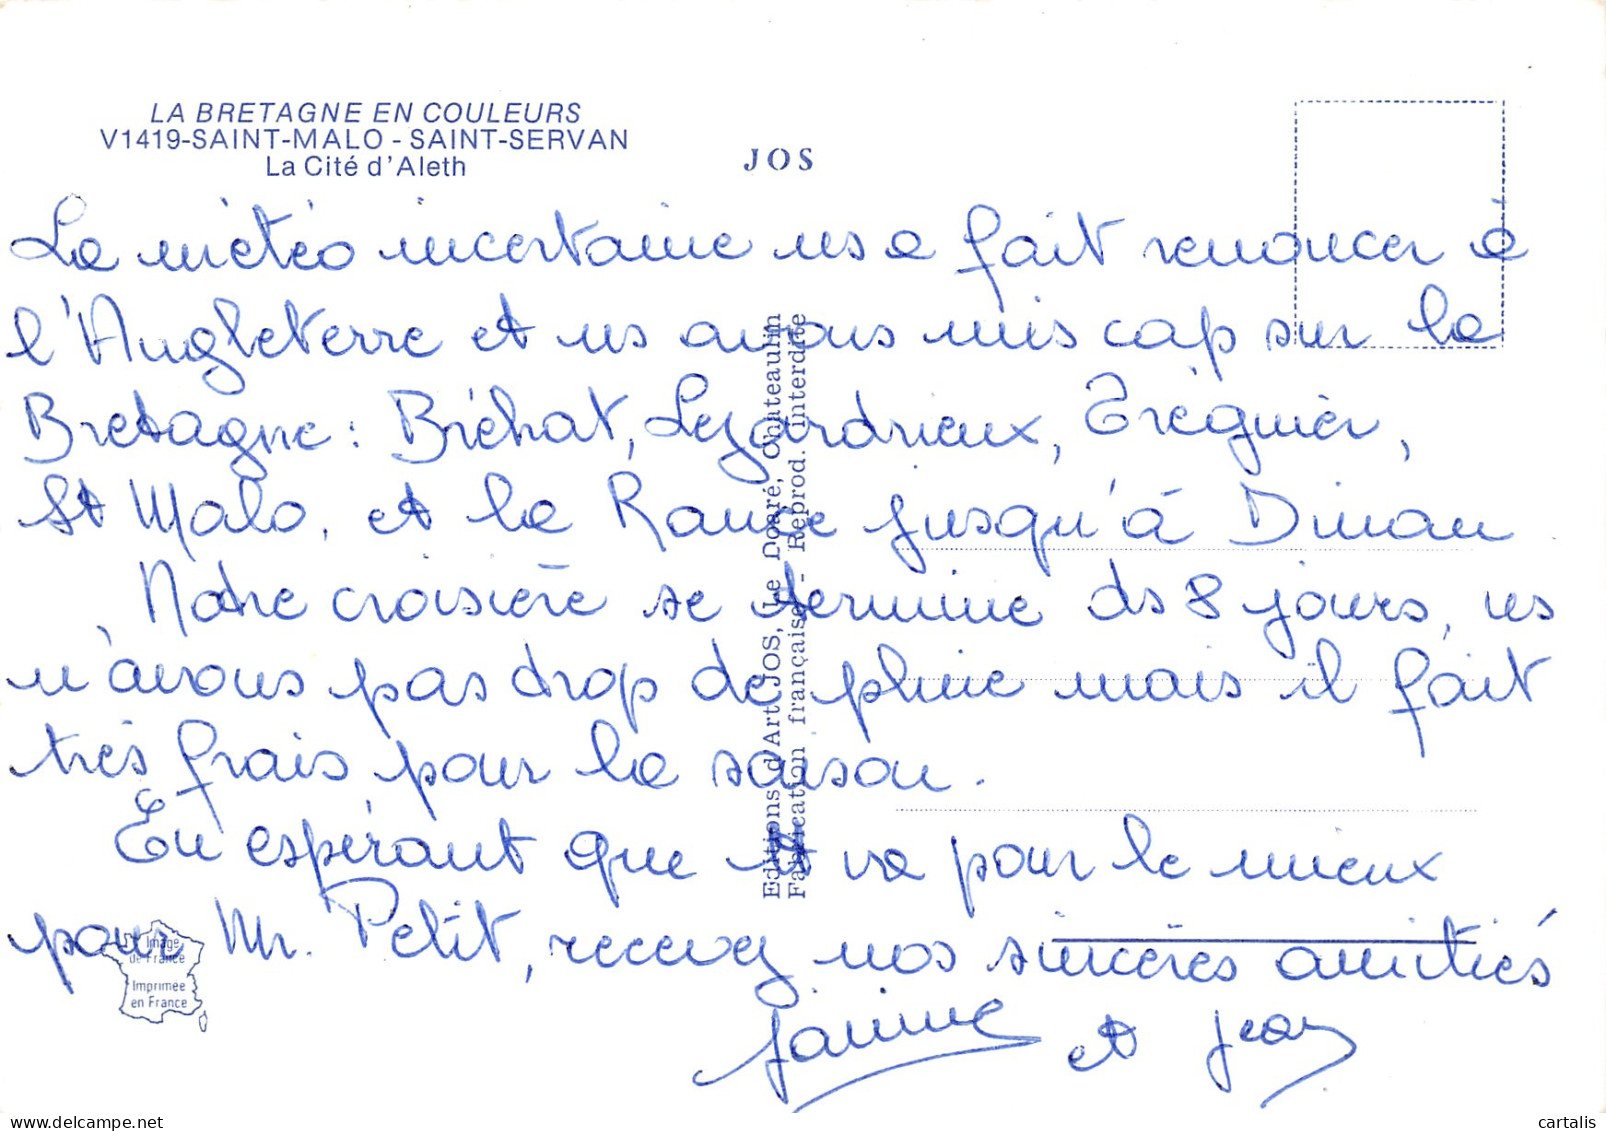 LA BRETAGNE EN COULEURS
V1419-SAINT-MALO - SAINT-SERVAN
La Cité d'Aleth
JOS
La météo incertaine ns a fait renoncer à
l'Angleterre et ns avons mis cap sur la
Bretagne : Bréhat, Lezardrieux, Tréguier,
St Malo, et la Rance jusqu'à Dinan
Notre croisière se termine ds 8 jours, ns
n'avons pas trop de pluie mais il fait
très frais pour la saison.
En espérant que tt va pour le mieux
pour Mr. Petit, recevez nos sincères amitiés
Janine et Jean
Editions d'Art JOS, Le Doaré, Chateaulin
Fabrication française - Reprod. interdite
Image
de France
Imprimée
en France
cartalis